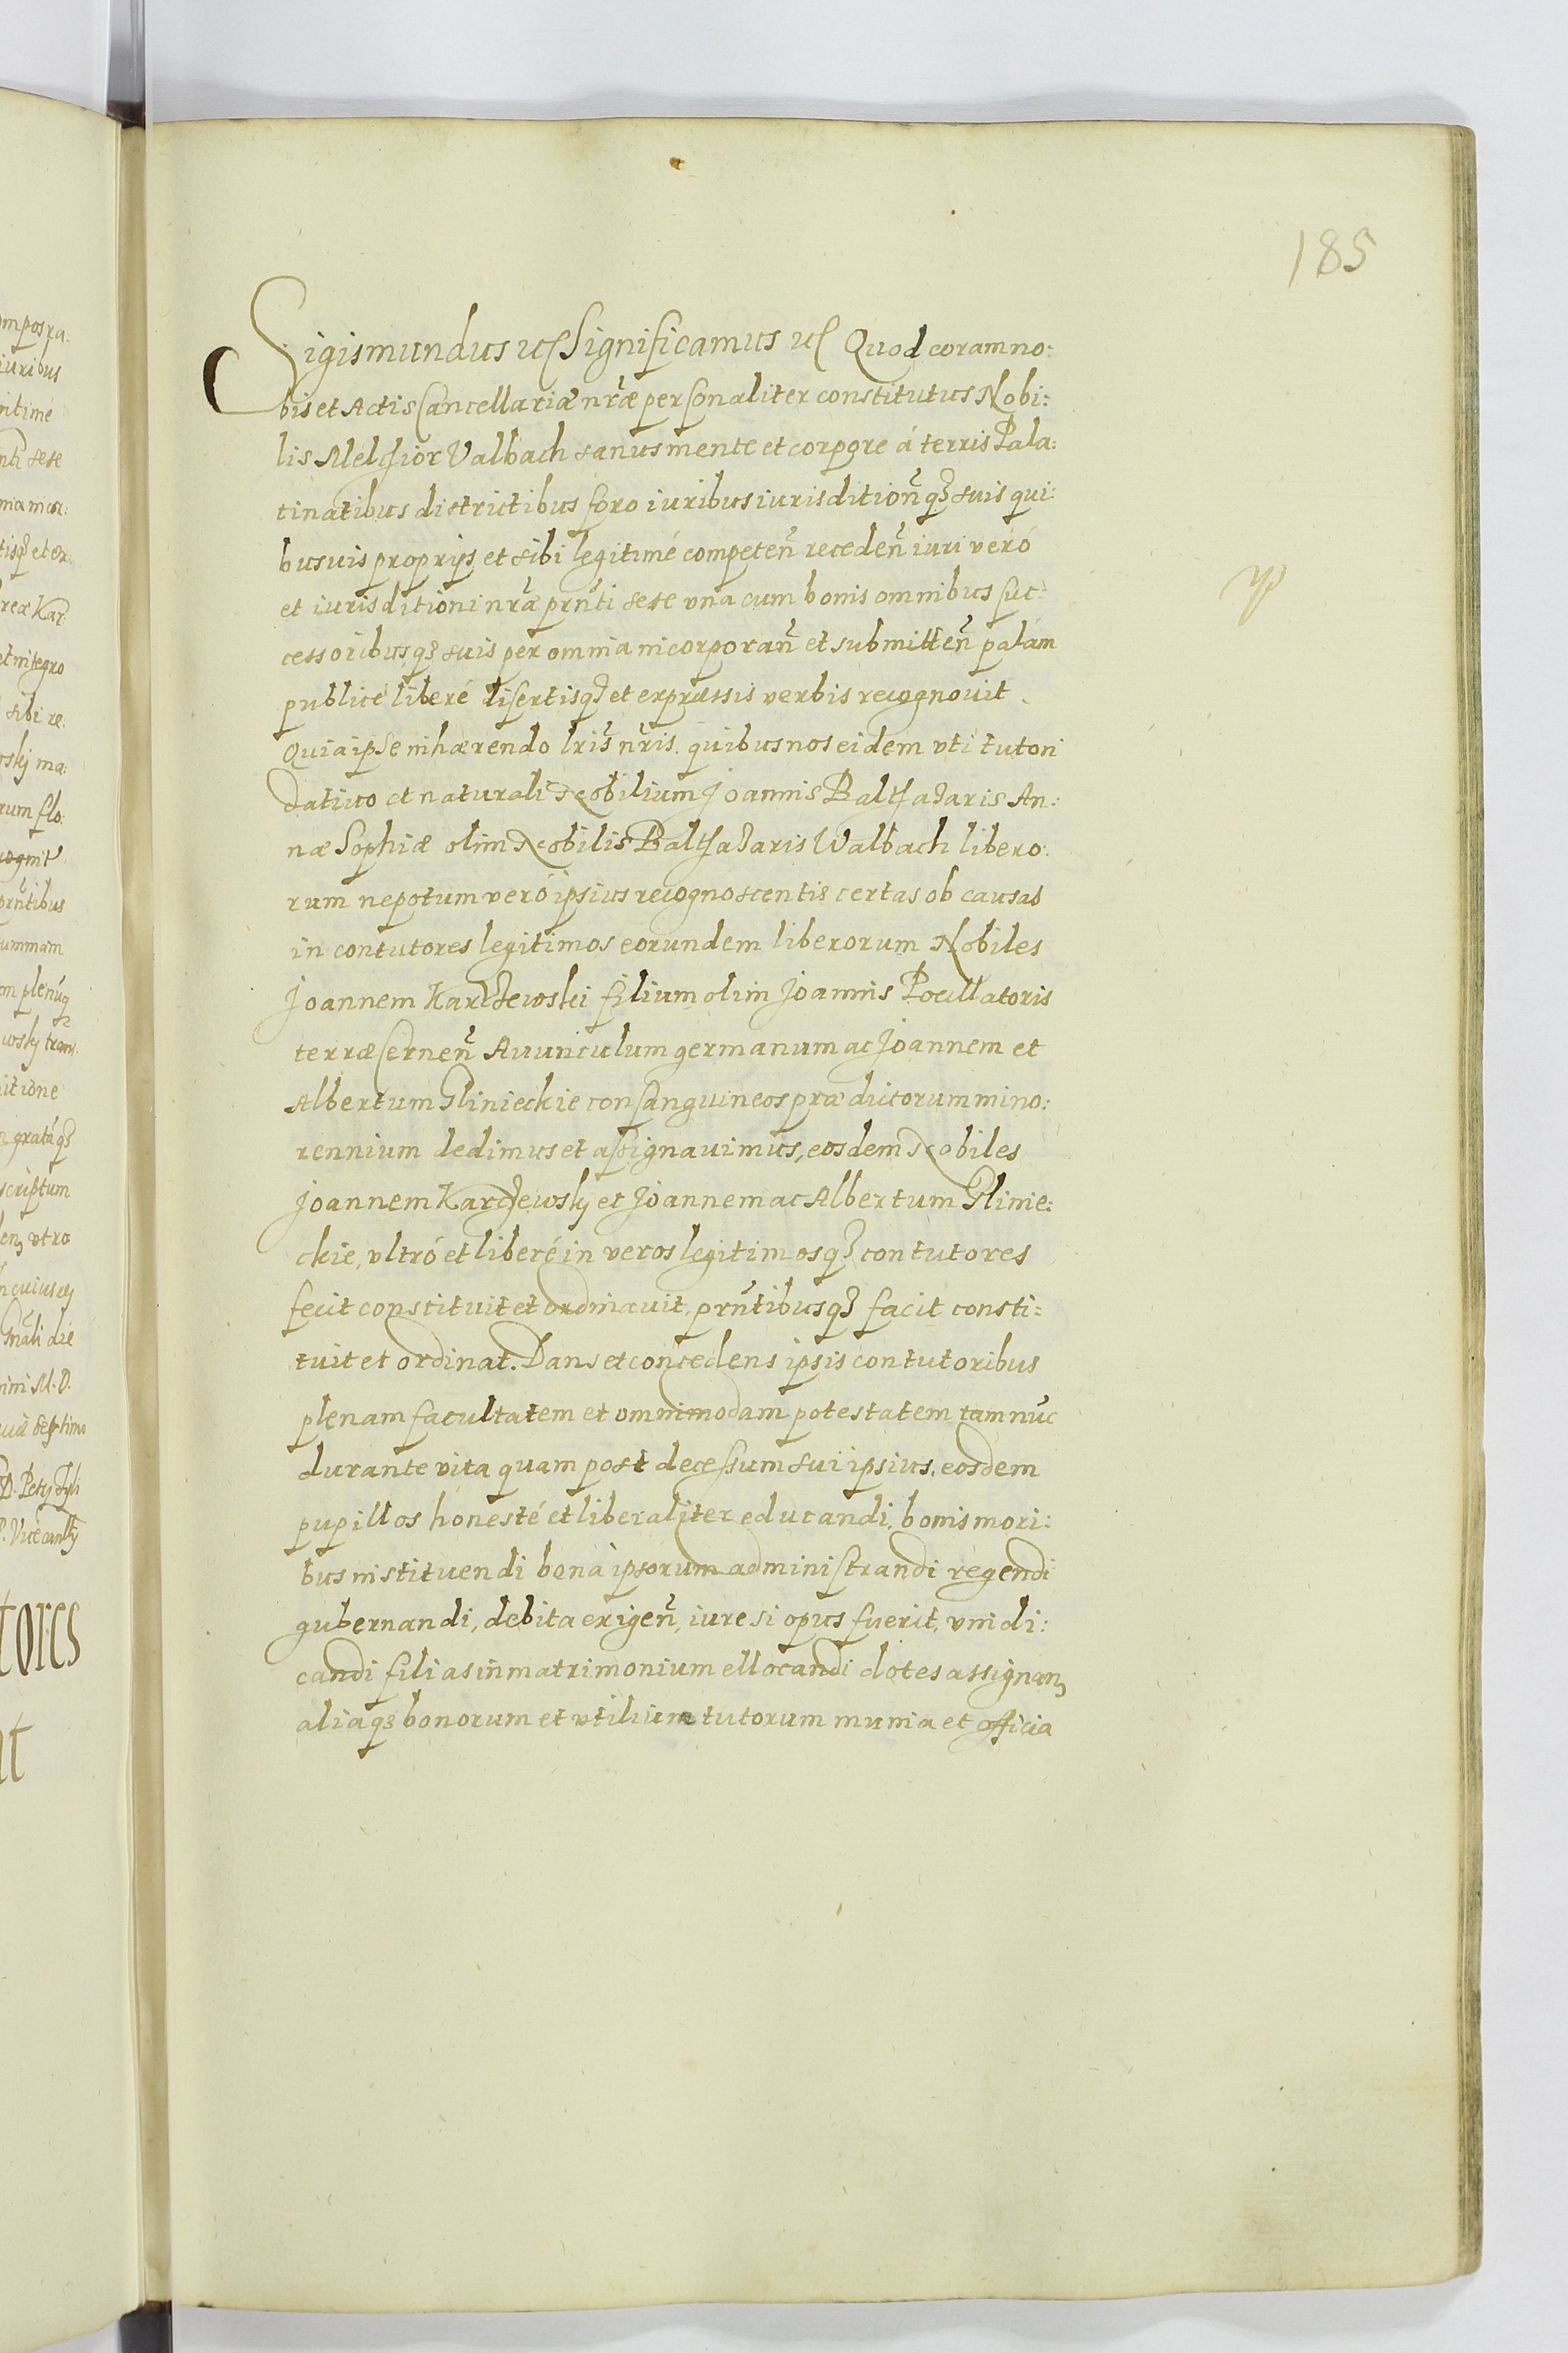 185
Sigismundus etc Significamus etc Quod coram no:
bis et Actis Cancellariæ nr̃æ personaliter constitutus Nobi:
lis Melchior Valbach sanus mente et corpore á terris Pala:
tinatibus districtibus foro iuribus iurisdition̄q₃ suis qui:
busuis proprijs et sibi legitimé competen̄ receden̄ iuri veró
et iurisditioni nr̃æ prn̄ti sese vna cum bonis omnibus suc:
cessoribusq₃ suis per omnia incorporan̄ et submitten̄ palám
publicé liberé disertisq₃ et expræssis verbis recognouit.
Quia ipse inhærendo lr̃is nr̃is. quibus nos eidem vti tutori
dativo et naturali Nobilium Joannis Balthazaris An:
næ Sophiæ olim Nobilis Balthazaris Walbach libero:
rum nepotum veró ipsius recognoscentis certas ob causas
in contutores legitimos eorundem liberorum Nobiles
Joannem Karczewski filium olim Joannis Pocillatoris
terræ Cernen̄ Auunculum germanum ac Joannem et
Albertum Glinieckie consanguineos prædictorum mino:
rennium dedimus et assignauimus, eosdem Nobiles
Joannem Karczewsky et Joannem ac Albertum Glinie:
ckie, vltró et liberé in veros legitimosq₃ contutores
fecit constituit et ordinauit, prn̄tibusq₃ facit consti:
tuit et ordinat. Dans et concedens ipsis contutoribus
plenam facultatem et omnimodam potestatem tam nūc
durante vita quam post decessum sui ipsius, eosdem
pupillos honesté et liberaliter educandi, bonis mori:
bus instituendi bona ipsorum administrandi regendi
gubernandi, debita exigen̄, iure si opus fuerit, vindi:
candi filias in matrimonium ellocandi dotes assignan₃
aliaq₃ bonorum et vtilium tutorum munia et officia